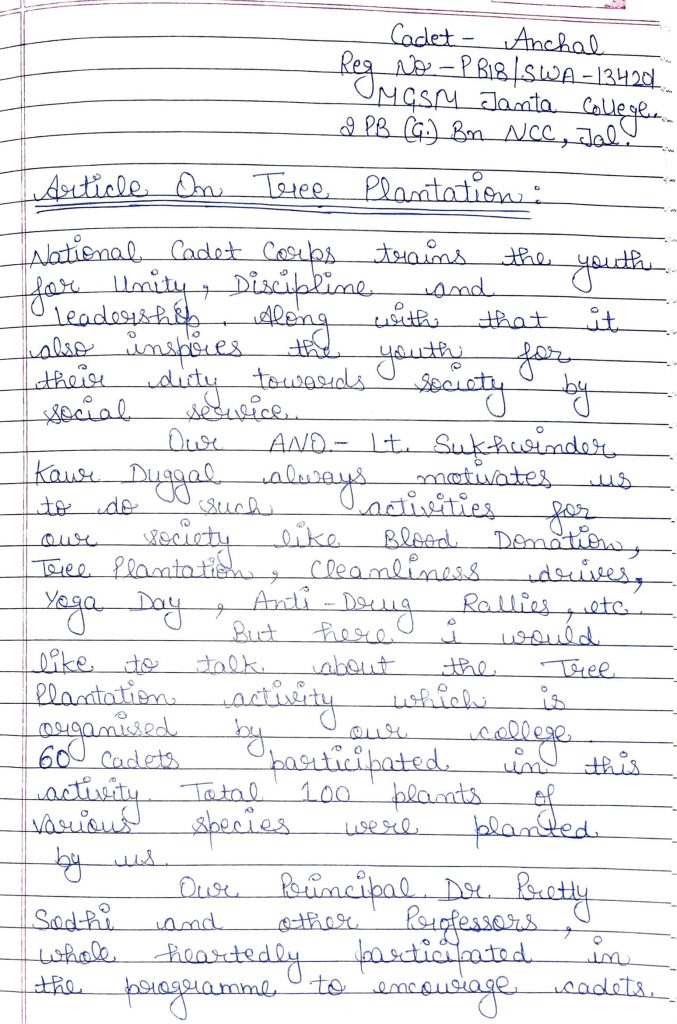 Cadet - Anchal
Reg No - PB18/SWA-13420
MGSM Janta College.
2 PB (G.) Bn NCC, Jal.
Article On Tree Plantation :
National Cadet Corps trains the youth
for Unity, Discipline and
leadership. Along with that it
also inspires the youth for
their duty towards society by
social service.
Our ANO.- Lt. Sukhwinder
Kaur Duggal always motivates us
to do such activities for
our society like Blood Donation,
Tree Plantation, Cleanliness drives,
Yoga Day, Anti-Drug Rallies, etc.
But here i would
like to talk about the Tree
Plantation activity which is
organised by our college.
60 Cadets participated in this
activity. Total 100 plants of
various species were planted
by us.
Our Principal Dr. Pretty
Sodhi and other Professors,
whole heartedly participated in
the programme to encourage cadets.